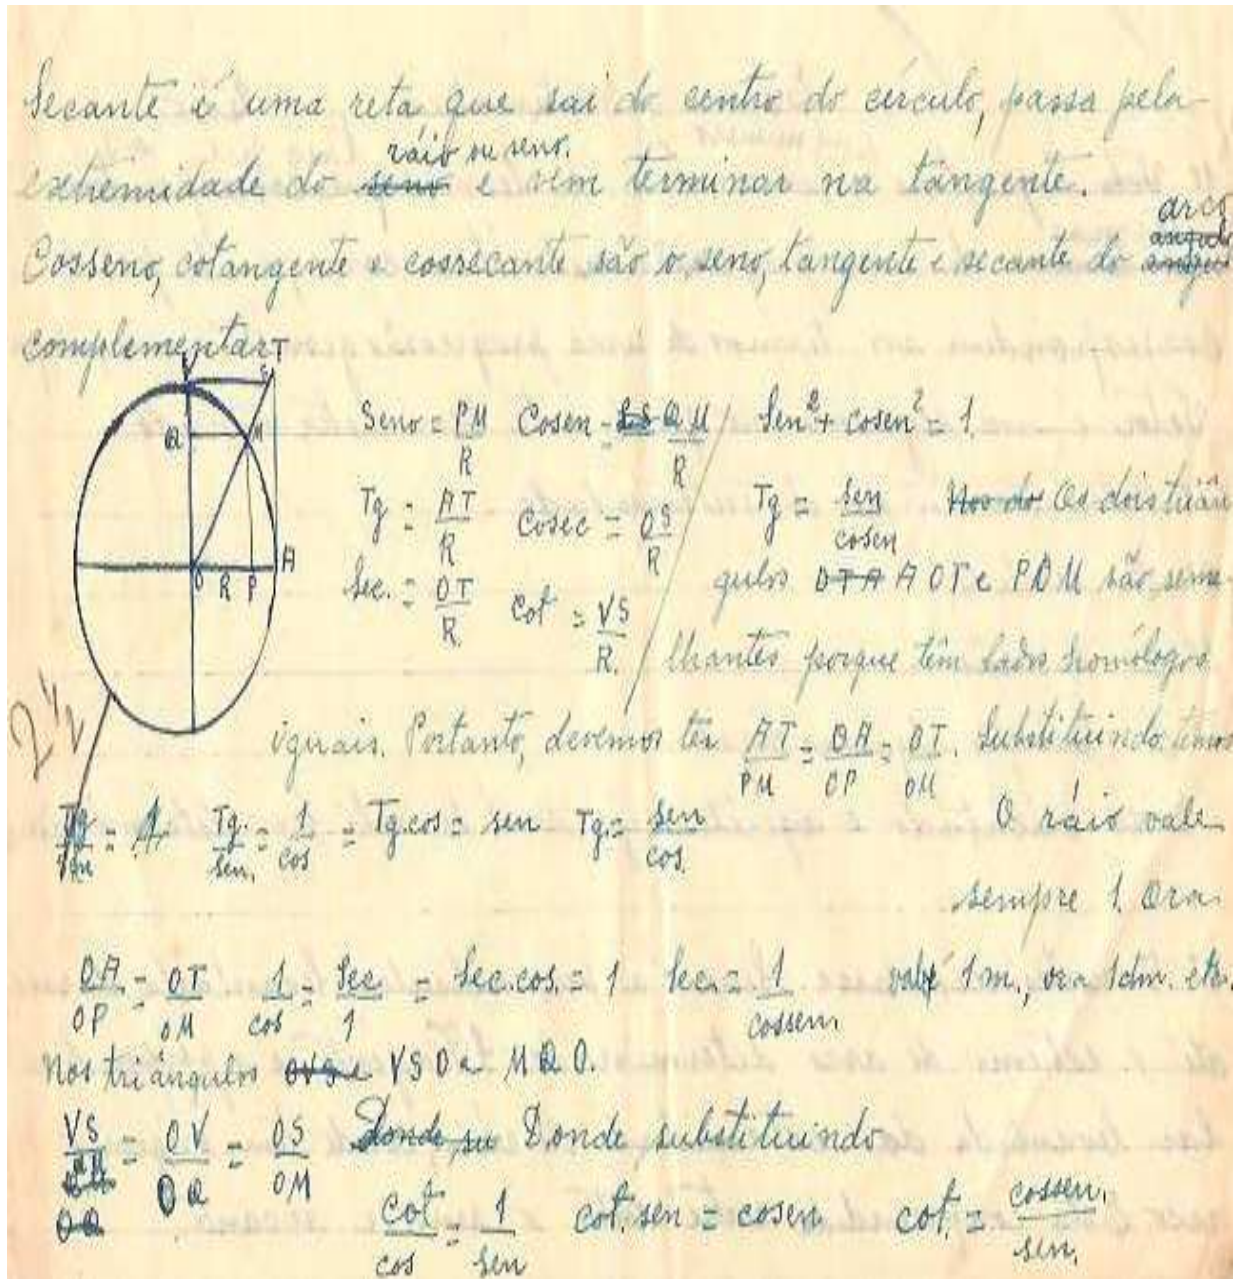 Secante é uma reta que sai do centro do círculo, passa pela
ráio ou seno.
extremidade do seno e vem terminar na tangente.
arco
Cosseno, cotangente e cossecante são o seno, tangente e secante do angulo
complementar
V S T
Q M
O R P A
Seno = PM/R Cosen = QM/R Sen² + cosen² = 1.
Tg = AT/R Cosec = OS/R Tg = sen/cosen Os dois triân
Sec. = OT/R Cot = VS/R. gulos OTA AOT e POM são seme-
lhantes porque têm lados homólogos
2 1/2
iguais. Portanto, devemos ter AT/PM = OA/OP = OT/OM. Substituindo, temos
Tg/sen = 1 Tg./sen. = 1/cos = Tg.cos = sen Tg = sen/cos. O ráio vale
sempre 1. Ora
OA/OP = OT/OM 1/cos = Sec/1 = Sec.cos. = 1 Sec. = 1/cossen. vale 1m., ora 1dm. etc.
Nos triângulos OVS e VSO e MQO.
VS/QM = OV/OQ = OS/OM Donde, su Donde, substituindo
OQ
Cot/cos = 1/sen cot.sen = cosen cot. = cossen./sen.